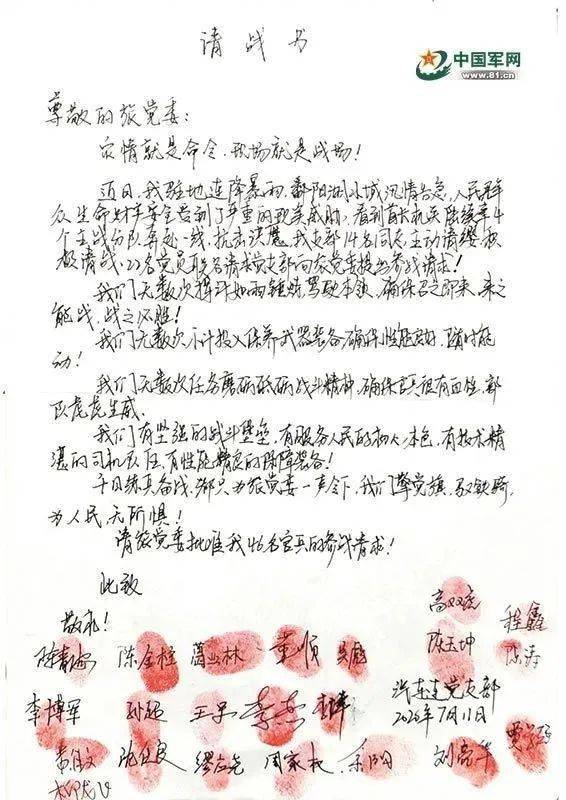 请战书
中国军网
www.81.cn
尊敬的旅党委：
灾情就是命令，现场就是战场！
近日，我驻地连降暴雨，鄱阳湖水域汛情告急，人民群
众生命财产安全受到了严重的现实威胁，看到首长机关陆续率4
个主战分队奔赴一线，抗击洪魔，我支部14名同志主动请缨，积
极请战，22名党员联名请求党支部向旅党委提出参战请求！
我们无数次挥汗如雨锤炼驾驶本领，确保召之即来，来之
能战，战之必胜！
我们无数次小计投入保养武器装备，确保性能良好，随时能
动！
我们无数次任务磨砺砥砺战斗精神，确保官兵很有血性，部
队虎虎生威。
我们有坚强的战斗堡垒，有服务人民的初心本色，有技术精
湛的司机队伍，有性能精良的保障装备！
千日练兵备战，都只为旅党委一声令下，我们擎党旗，驭铁骑，
为人民，无所惧！
请旅党委批准我46名官兵的参战请求！
此致
敬礼！
高双宏 程鑫
陈金柱 葛业林 董顺 吴彪 陈玉坤 陈涛
李博军 孙超 王早 李杰
汽车连党支部
2020年7月11日
沈卫良 缪应尧 周家权 余阳 刘亮华